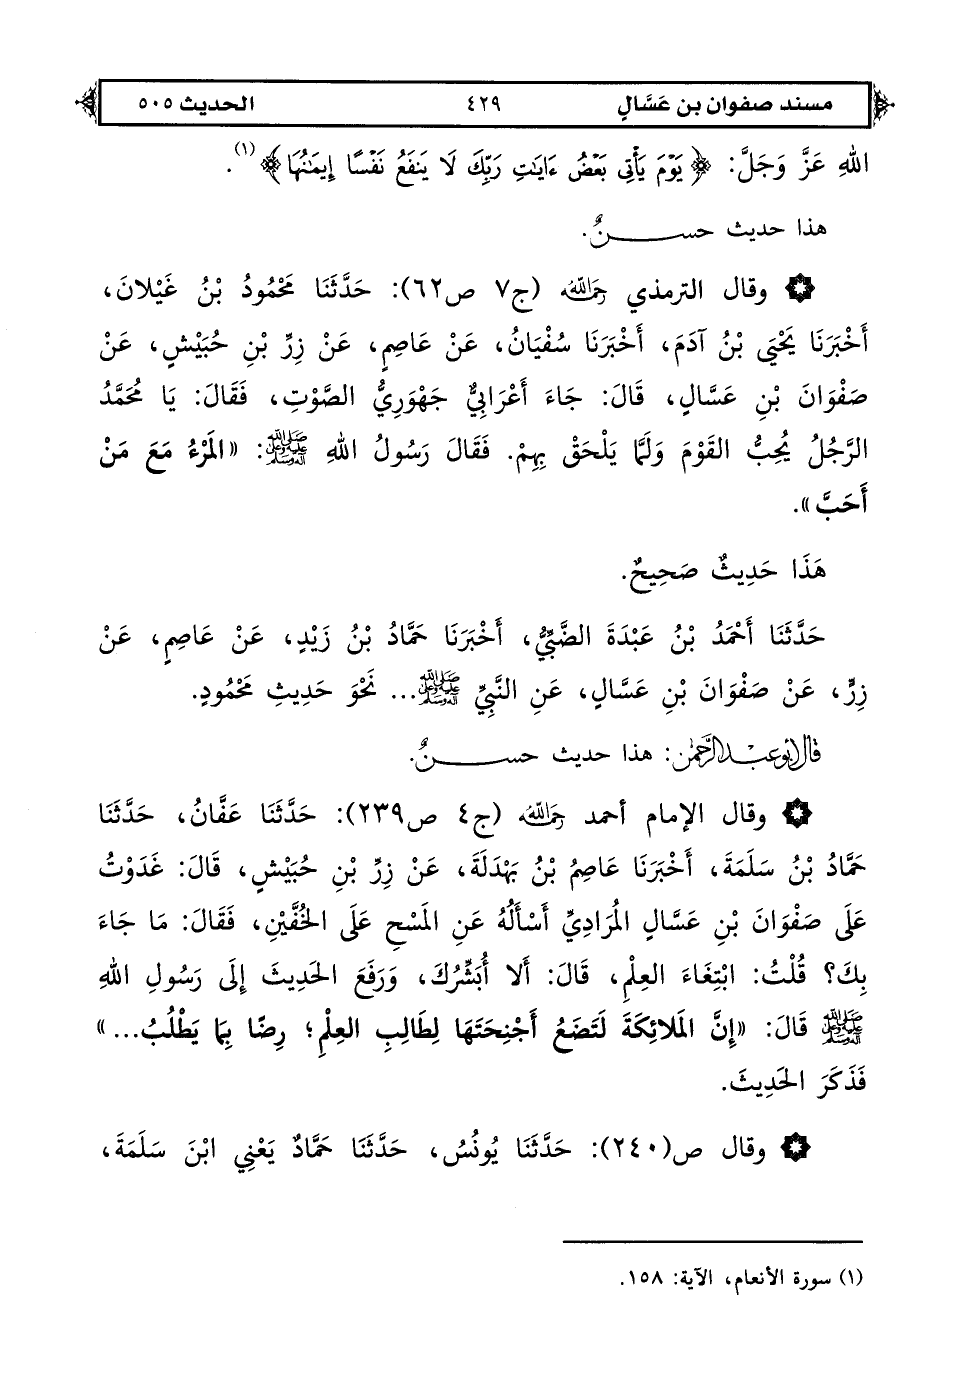 مسند صفوان بن عَسَّالٍ ٤٢٩ الحديث ٥٠٥
اللهِ عَزَّ وَجَلَّ: ﴿يَوْمَ يَأْتِي بَعْضُ ءَايَاتِ رَبِّكَ لَا يَنفَعُ نَفْسًا إِيمَٰنُهَا﴾(١).
هذا حديث حســـنٌ.
۞ وقال الترمذي رحمه الله (ج٧ ص٦٢): حَدَّثَنَا مَحْمُودُ بْنُ غَيْلانَ،
أَخْبَرَنَا يَحْيَى بْنُ آدَمَ، أَخْبَرَنَا سُفْيَانُ، عَنْ عَاصِمٍ، عَنْ زِرِّ بْنِ حُبَيْشٍ، عَنْ
صَفْوَانَ بْنِ عَسَّالٍ، قَالَ: جَاءَ أَعْرَابِيٌّ جَهْوَرِيُّ الصَّوْتِ، فَقَالَ: يَا مُحَمَّدُ
الرَّجُلُ يُحِبُّ القَوْمَ وَلَمَّا يَلْحَقْ بِهِمْ. فَقَالَ رَسُولُ اللهِ ﷺ: «المَرْءُ مَعَ مَنْ
أَحَبَّ».
هَذَا حَدِيثٌ صَحِيحٌ.
حَدَّثَنَا أَحْمَدُ بْنُ عَبْدَةَ الضَّبِّيُّ، أَخْبَرَنَا حَمَّادُ بْنُ زَيْدٍ، عَنْ عَاصِمٍ، عَنْ
زِرٍّ، عَنْ صَفْوَانَ بْنِ عَسَّالٍ، عَنِ النَّبِيِّ ﷺ... نَحْوَ حَدِيثِ مَحْمُودٍ.
قال أبو عبد الرحمن: هذا حديث حســـنٌ.
۞ وقال الإمام أحمد رحمه الله (ج٤ ص٢٣٩): حَدَّثَنَا عَفَّانُ، حَدَّثَنَا
حَمَّادُ بْنُ سَلَمَةَ، أَخْبَرَنَا عَاصِمُ بْنُ بَهْدَلَةَ، عَنْ زِرِّ بْنِ حُبَيْشٍ، قَالَ: غَدَوْتُ
عَلَى صَفْوَانَ بْنِ عَسَّالٍ المُرَادِيِّ أَسْأَلُهُ عَنِ المَسْحِ عَلَى الخُفَّيْنِ، فَقَالَ: مَا جَاءَ
بِكَ؟ قُلْتُ: ابْتِغَاءَ العِلْمِ، قَالَ: أَلا أُبَشِّرُكَ، وَرَفَعَ الحَدِيثَ إِلَى رَسُولِ اللهِ
ﷺ قَالَ: «إِنَّ المَلائِكَةَ لَتَضَعُ أَجْنِحَتَهَا لِطَالِبِ العِلْمِ؛ رِضًا بِمَا يَطْلُبُ...»
فَذَكَرَ الحَدِيثَ.
۞ وقال ص(٢٤٠): حَدَّثَنَا يُونُسُ، حَدَّثَنَا حَمَّادٌ يَعْنِي ابْنَ سَلَمَةَ،
(١) سورة الأنعام، الآية: ١٥٨.